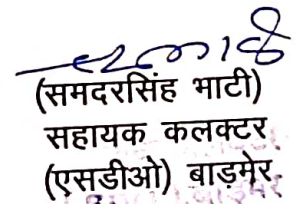 (समदरसिंह भाटी)
सहायक कलक्टर
(एसडीओ) बाड़मेर